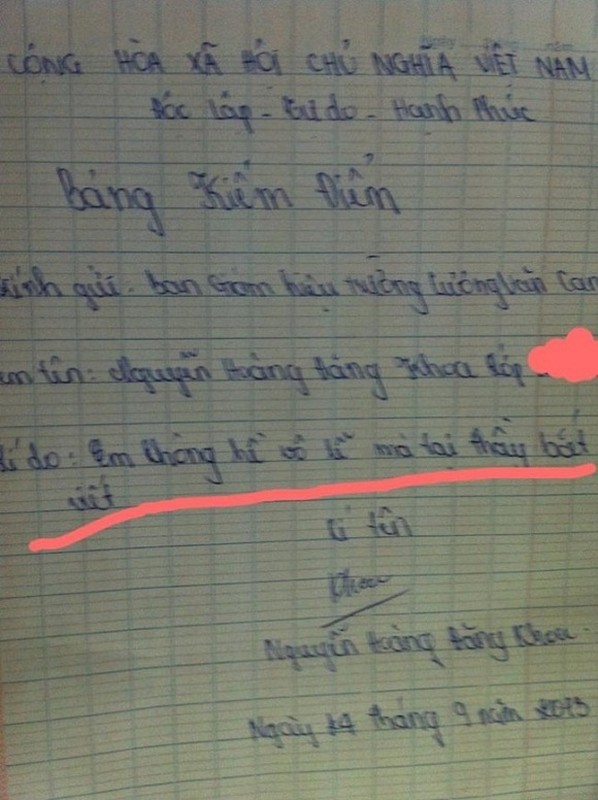 CÔNG HÒA XÃ HỘI CHỦ NGHĨA VIỆT NAM
Độc lập - Tự do - Hạnh Phúc
Bảng Kiểm Điểm
kính gửi: ban Giám hiệu trường Lương Văn Can
em tên: Nguyễn Hoàng Đăng Khoa lớp
Lí do: Em không hề vô lễ mà tại thầy bắt
viết
kí tên
Khoa
Nguyễn Hoàng Đăng Khoa.
Ngày 24 tháng 9 năm 2013